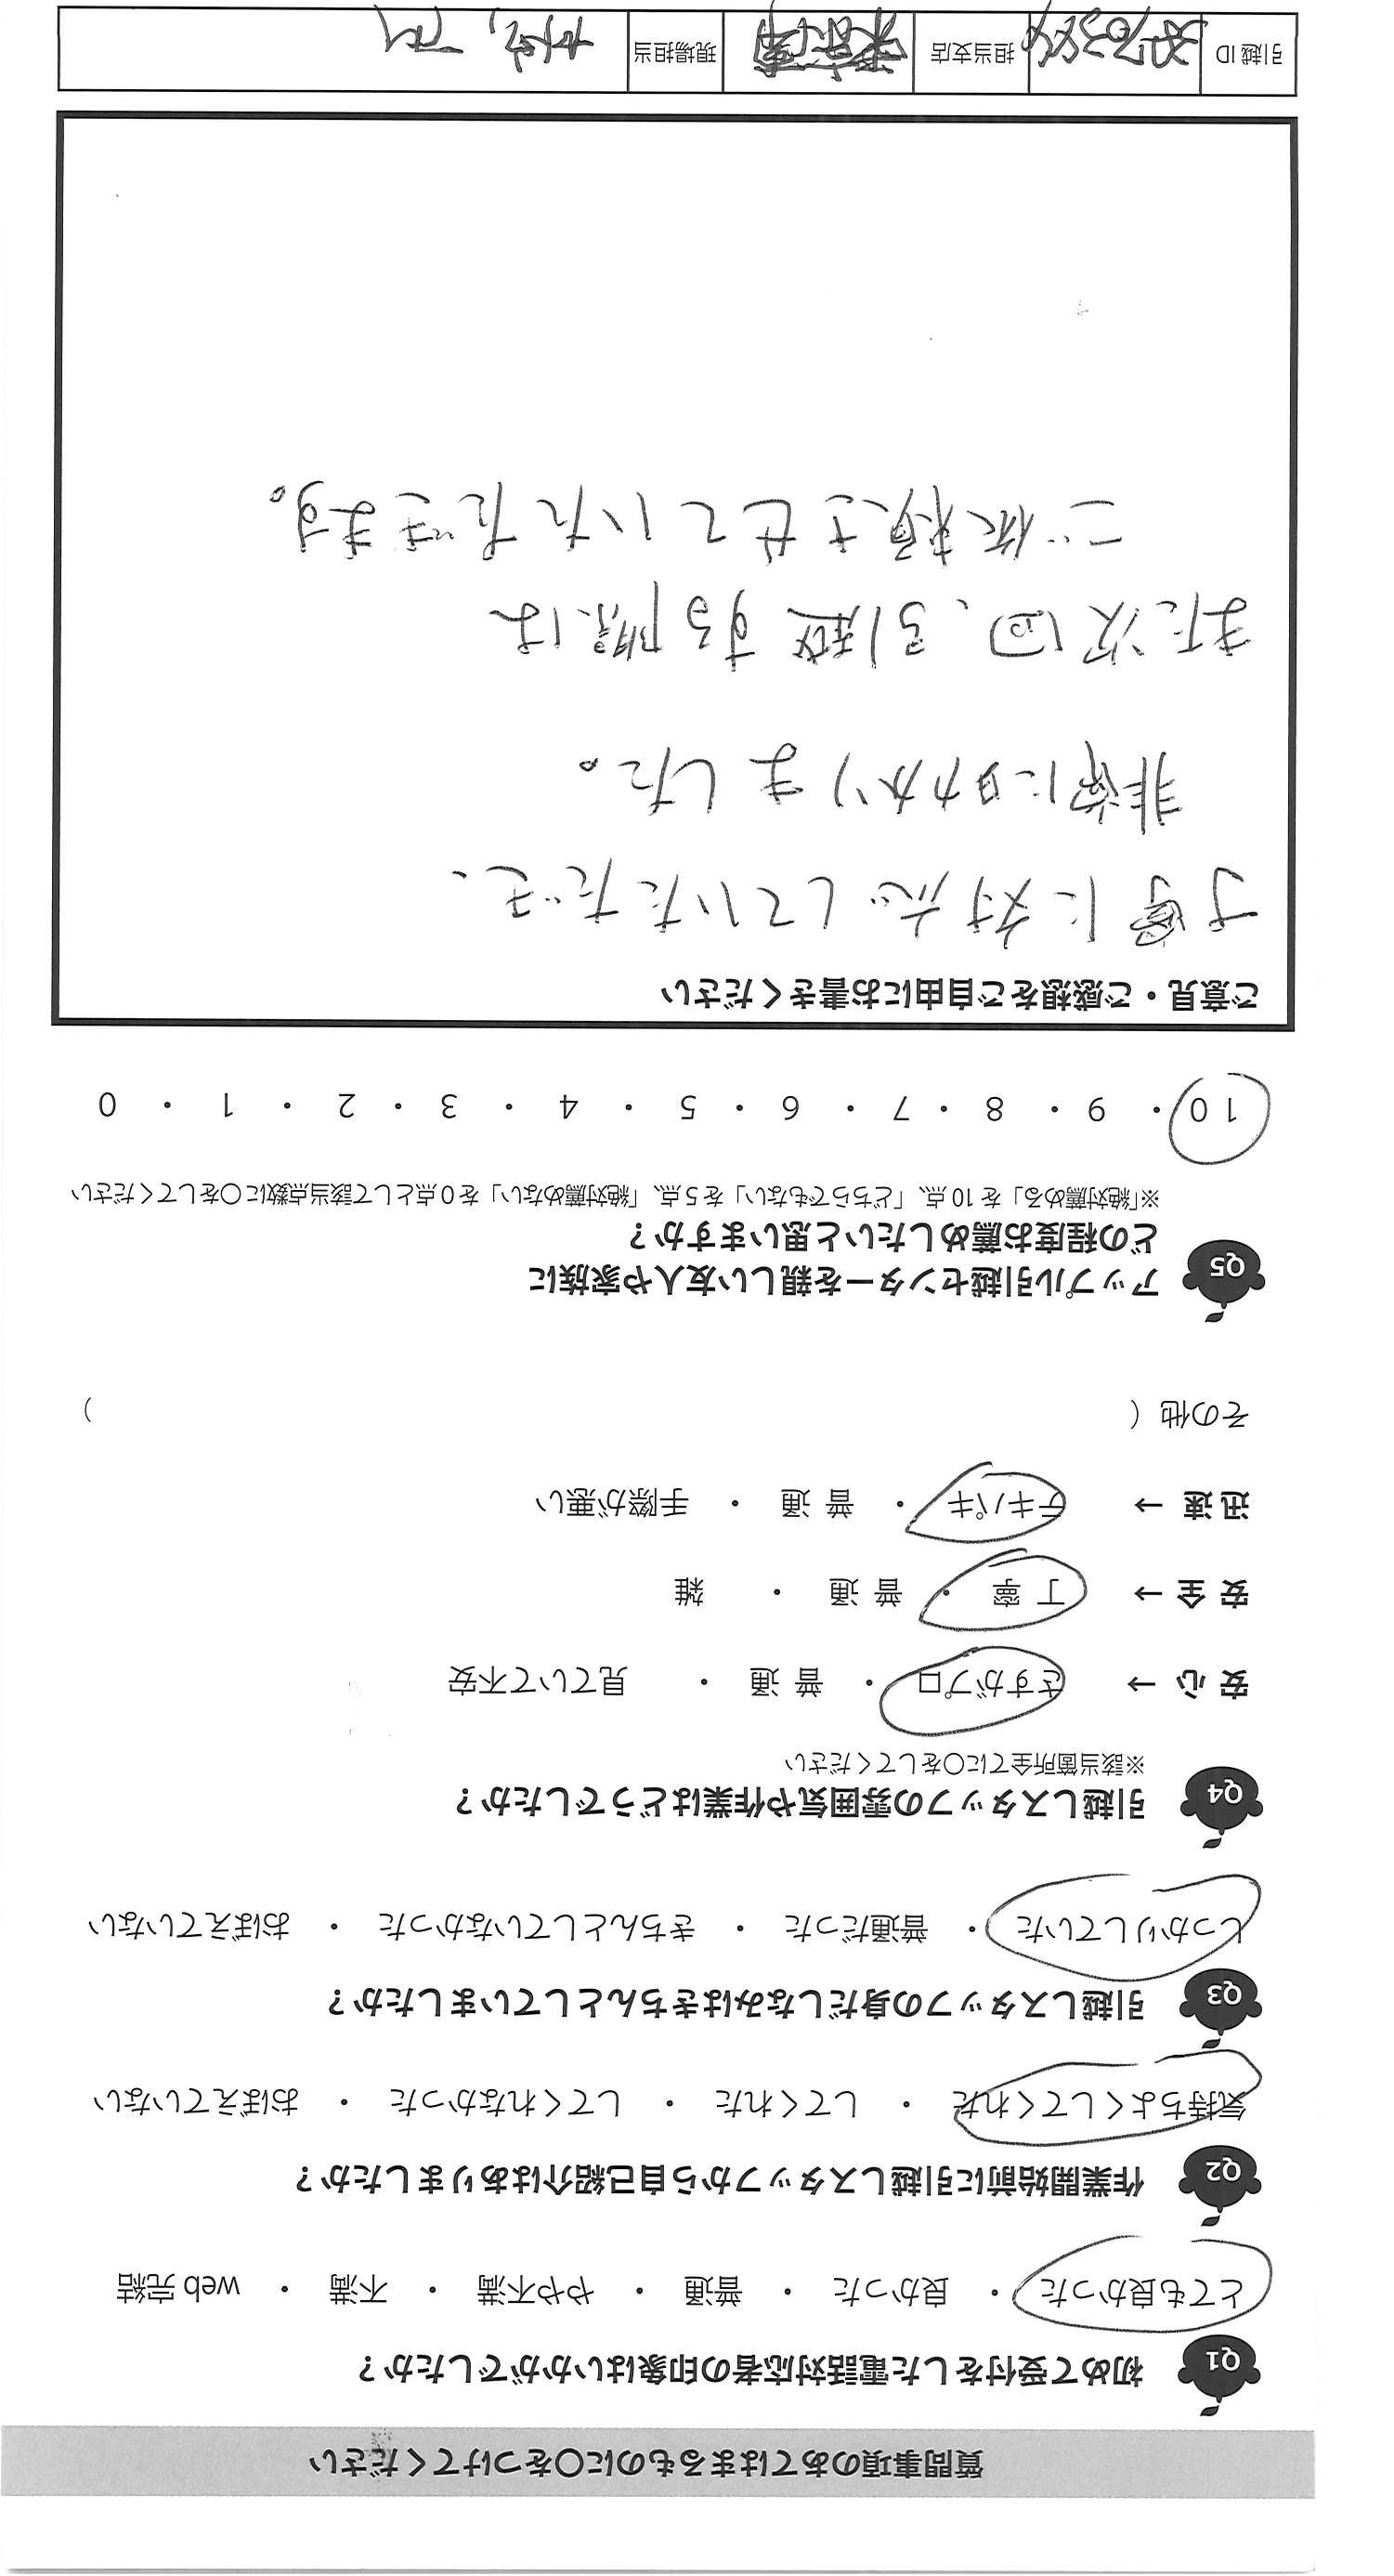 質問事項のあてはまるものに〇をつけてください
Q1 初めて受付をした電話対応者の印象はいかがでしたか？
とても良かった ・ 良かった ・ 普通 ・ やや不満 ・ 不満 ・ web 完結
Q2 作業開始前に引越しスタッフから自己紹介はありましたか？
気持ちよくしてくれた ・ してくれた ・ してくれなかった ・ おぼえていない
Q3 引越しスタッフの身だしなみはきちんとしていましたか？
しっかりしていた ・ 普通だった ・ きちんとしていなかった ・ おぼえていない
Q4 引越しスタッフの雰囲気や作業はどうでしたか？
※該当箇所全てに〇をしてください
安心 → さすがプロ ・ 普通 ・ 見ていて不安
安全 → 丁寧 ・ 普通 ・ 雑
迅速 → テキパキ ・ 普通 ・ 手際が悪い
その他（ ）
Q5 アップル引越センターを親しい友人や家族に
どの程度お薦めしたいと思いますか？
※「絶対薦める」を 10 点、「どちらでもない」を 5 点、「絶対薦めない」を 0 点として該当点数に〇をしてください
10 ・ 9 ・ 8 ・ 7 ・ 6 ・ 5 ・ 4 ・ 3 ・ 2 ・ 1 ・ 0
ご意見・ご感想をご自由にお書きください
丁寧に対応していただき、
非常に助かりました。
また次回、引越する際は
ご依頼させていただきます。
引越 ID 担当支店 現場担当